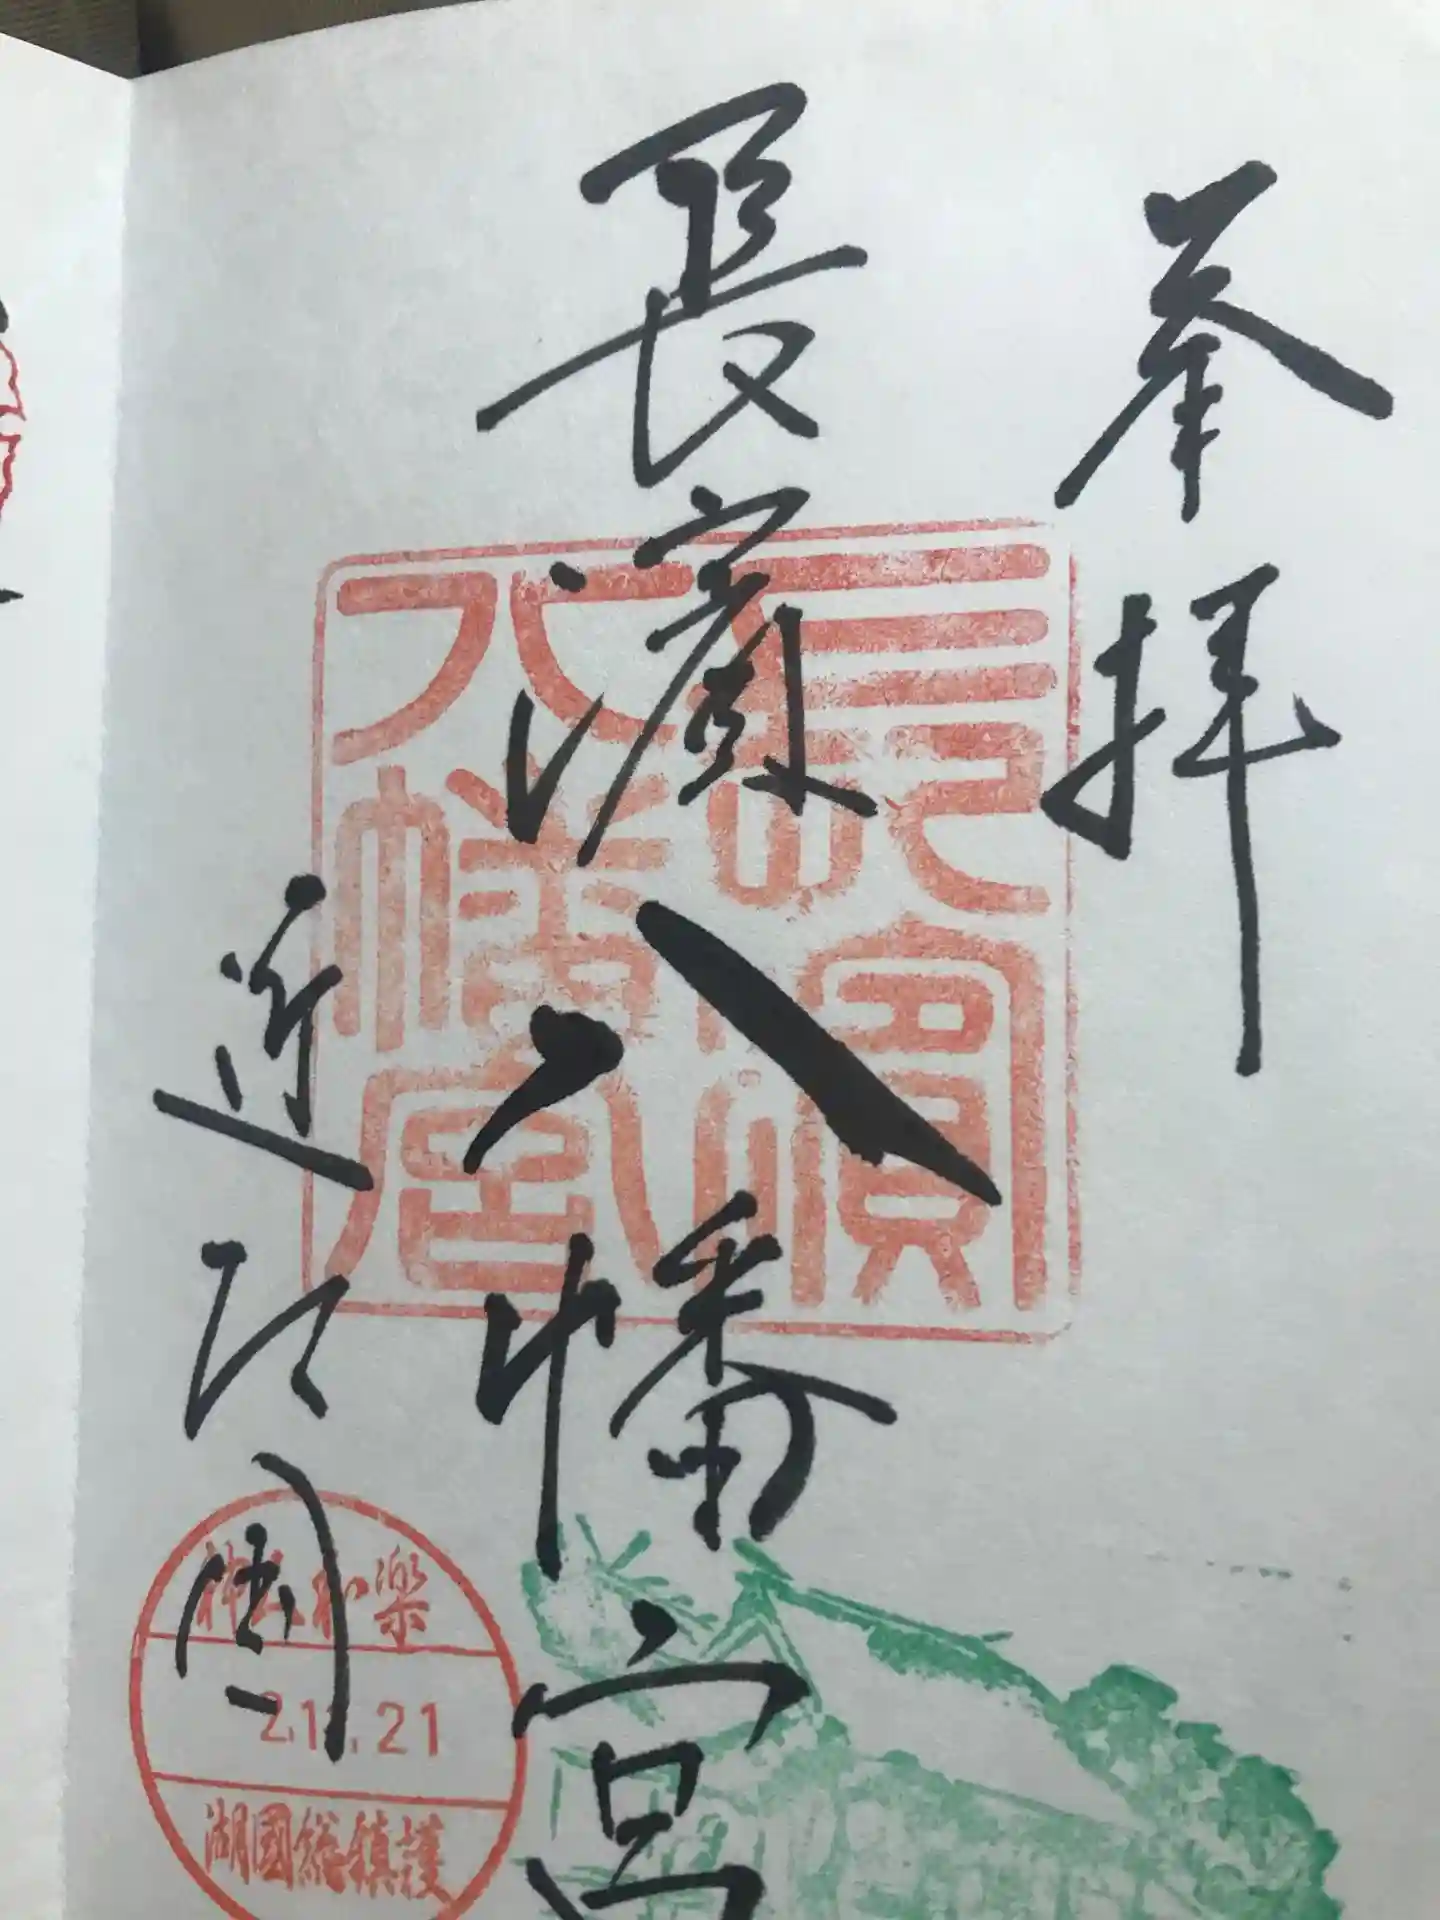 奉拝
長濱八幡宮
近江國
長濱
八幡宮
神人和楽
2.1 .21
湖國総鎮護